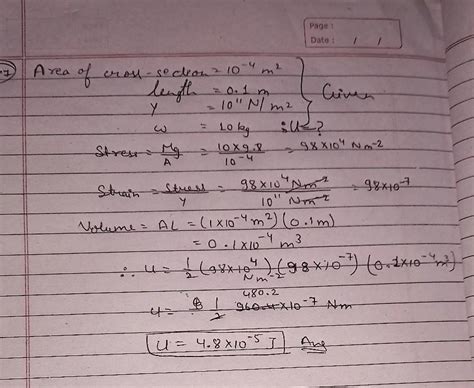 Page :
Date : / /
Area of cross-section = 10⁻⁴ m²
length = 0.1 m
Y = 10¹¹ N/m² } Given
w = 10 kg :U=?
Stress = Mg/A = 10×9.8/10⁻⁴ = 98×10⁴ Nm⁻²
Strain = Stress/Y = 98×10⁴ Nm⁻²/10¹¹ Nm⁻² = 98×10⁻⁷
Volume = AL = (1×10⁻⁴ m²) (0.1m)
= 0.1×10⁻⁴ m³
∴ U = 1/2 (98×10⁴ Nm⁻²) (98×10⁻⁷) (0.1×10⁻⁴ m³)
480.2
U = 1/2 960.4×10⁻⁷ Nm
U = 4.8×10⁻⁵ J Ans